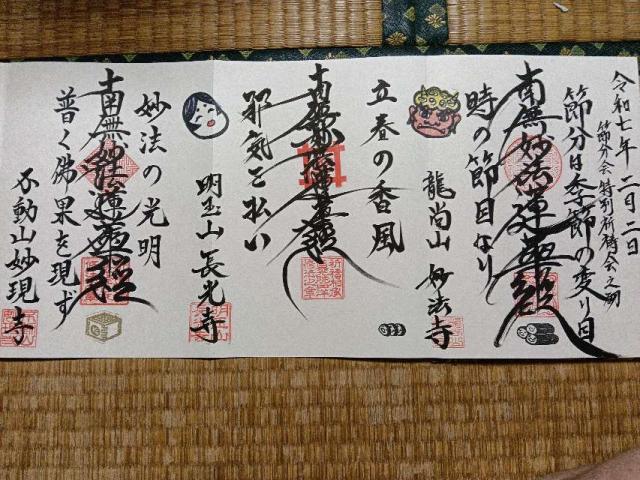 令和七年 二月二日
節分会 特別祈祷会之砌
節分は季節の変り目
南無妙法蓮華経
時の節目なり
龍尚山 妙法寺
立春の香風
南無妙法蓮華経
邪気を払い
明玉山 長光寺
妙法の光明
南無妙法蓮華経
普く佛果を現ず
不動山妙現寺